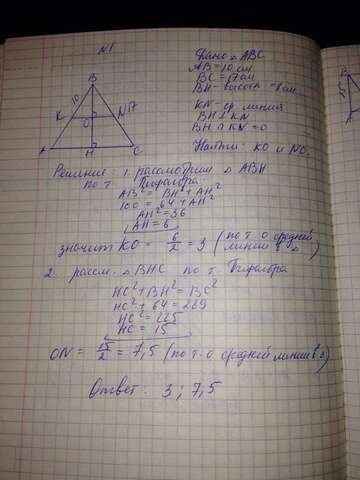 N1
Дано △ ABC
AB = 10 см
BC = 17 см
BH - высота = 8 см
KN - ср. линия
BH ⊥ KN
BH ∩ KN = O
Найти: KO и NO.
B
10
K
O
N
17
A
H
C
Решение 1. рассмотрим △ ABH
по т. Пифагора
AB² = BH² + AH²
100 = 64 + AH²
AH² = 36
AH = 6
значит KO = 6/2 = 3 (по т. о средней
линии в △)
2. рассм. △ BHC по т. Пифагора
HC² + BH² = BC²
HC² + 64 = 289
HC² = 225
HC = 15
ON = 15/2 = 7,5 (по т. о средней линии в △)
Ответ: 3 ; 7,5